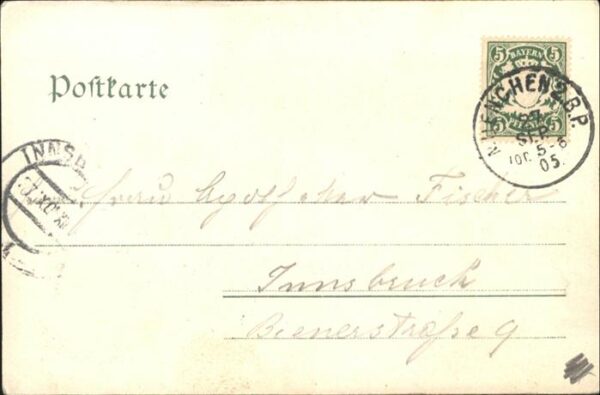 Postkarte
5 BAYERN 5
5 5
MUENCHEN 2.B.P.
SEP
5-6
05.
INNSB
Frau Fischer
Innsbruck
Bienerstraße 9